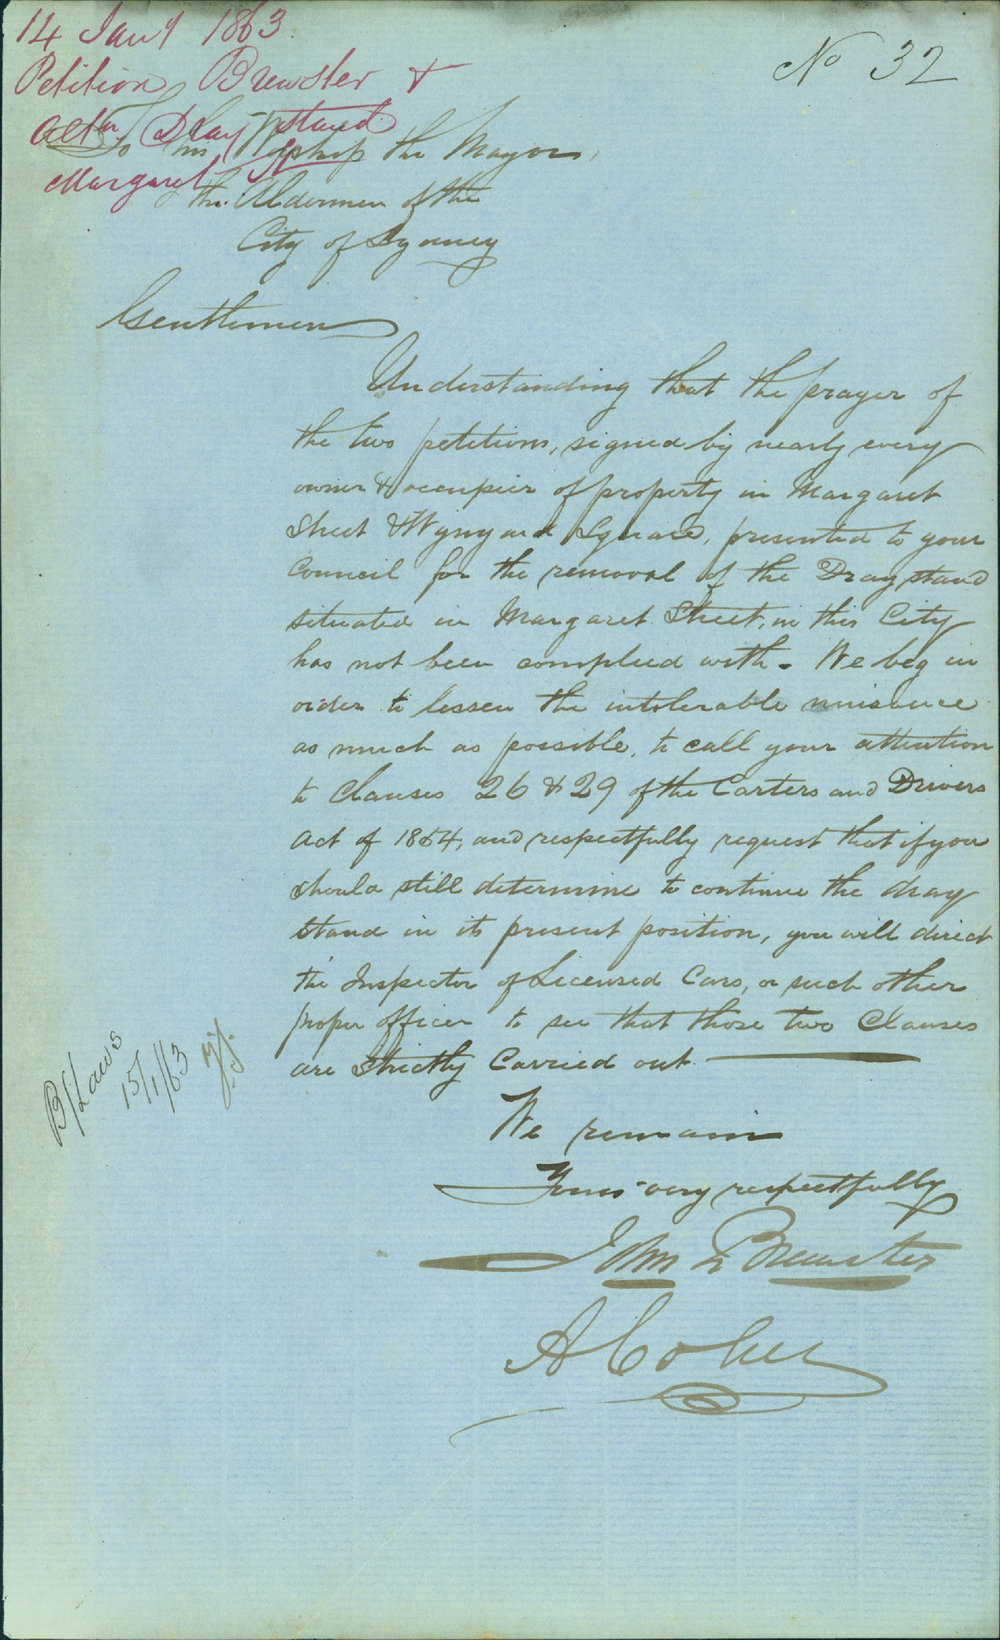 14 Jany 1863
No 32
Petition Brewster &
Dray stand
Margaret St
To His Worship the Mayor,
the Aldermen of the
City of Sydney
Gentlemen
Understanding that the prayer of
the two petitions, signed by nearly every
owner & occupier of property in Margaret
Street & Wynyard Square, presented to your
Council for the removal of the Dray stand
situated in Margaret Street, in this City
has not been complied with. We beg in
order to lessen the intolerable nuisance
as much as possible, to call your attention
to Clauses 26 & 29 of the Carters and Drivers
Act of 1854, and respectfully request that if you
should still determine to continue the dray
stand in its present position, you will direct
the Inspector of Licensed Cars, or such other
proper officer to see that those two Clauses
are Strictly Carried out
B/Laws
15/1/63
We remain
Yours very respectfully
John L Brewster
A Cohen